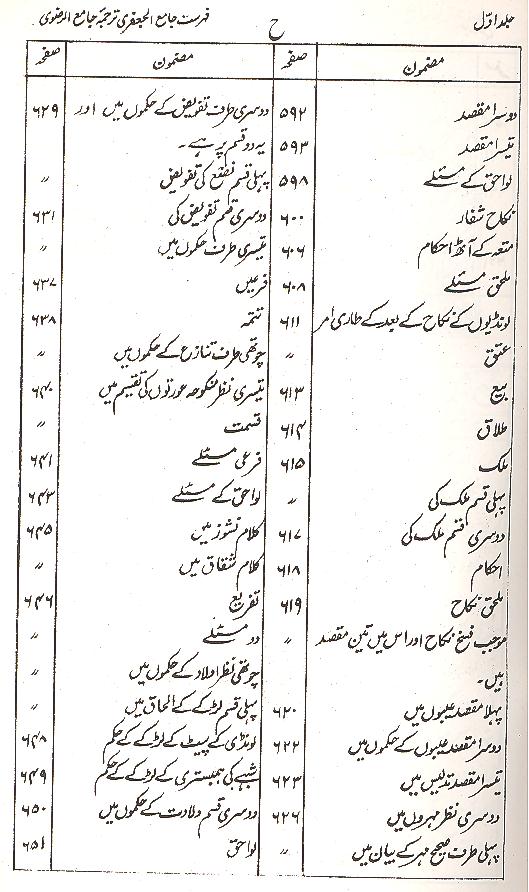 جلد اوّل
ح
فہرست جامع الجعفری ترجمۂ جامع الرضوی
مضمون صفحہ
دوسرا مقصد ۵۹۲
تیسرا مقصد ۵۹۳
لواحق کے مسئلے ۵۹۸
نکاح شغار ۶۰۰
متعہ کے آٹھ احکام ۶۰۶
ملحق مسئلے ۶۰۸
لونڈیوں کے نکاح کے بعد کے طاری امر ۶۱۱
عتق 〃
بیع ۶۱۳
طلاق ۶۱۴
ملک ۶۱۵
پہلی قسم ملک کی 〃
دوسری قسم ملک کی ۶۱۷
احکام ۶۱۸
ملحق نکاح ۶۱۹
موجب فسخ نکاح اور اس میں تین مقصد 〃
ہیں۔
پہلا مقصد عیبوں میں ۶۲۰
دوسرا مقصد عیبوں کے حکموں میں ۶۲۲
تیسرا مقصد تدلیس میں ۶۲۳
دوسری نظر مہروں میں ۶۲۶
پہلی طرف صحیح مہر کے بیان میں 〃
مضمون صفحہ
دوسری طرف تفویض کے حکموں میں اور ۶۲۹
یہ دو قسم پر ہے۔
پہلی قسم بضع کی تفویض 〃
دوسری قسم تفویض کی ۶۳۱
تیسری طرف حکموں میں 〃
فرعیں ۶۳۷
تتمہ ۶۳۸
چوتھی طرف تنازع کے حکموں میں 〃
تیسری نظر منکوحہ عورتوں کی تقسیم میں ۶۴۰
قسمت 〃
فرعی مسئلے ۶۴۱
لواحق کے مسئلے ۶۴۳
کلام نشوز میں ۶۴۵
کلام شقاق میں 〃
تفریع ۶۴۶
دو مسئلے 〃
چوتھی نظر اولاد کے حکموں میں 〃
پہلی قسم لڑکے کے الحاق میں 〃
لونڈی کے پیٹ کے لڑکے کے حکم ۶۴۸
شبہے کی ہمبستری کے لڑکے کے حکم ۶۴۹
دوسری قسم ولادت کے حکموں میں ۶۵۰
لواحق ۶۵۱